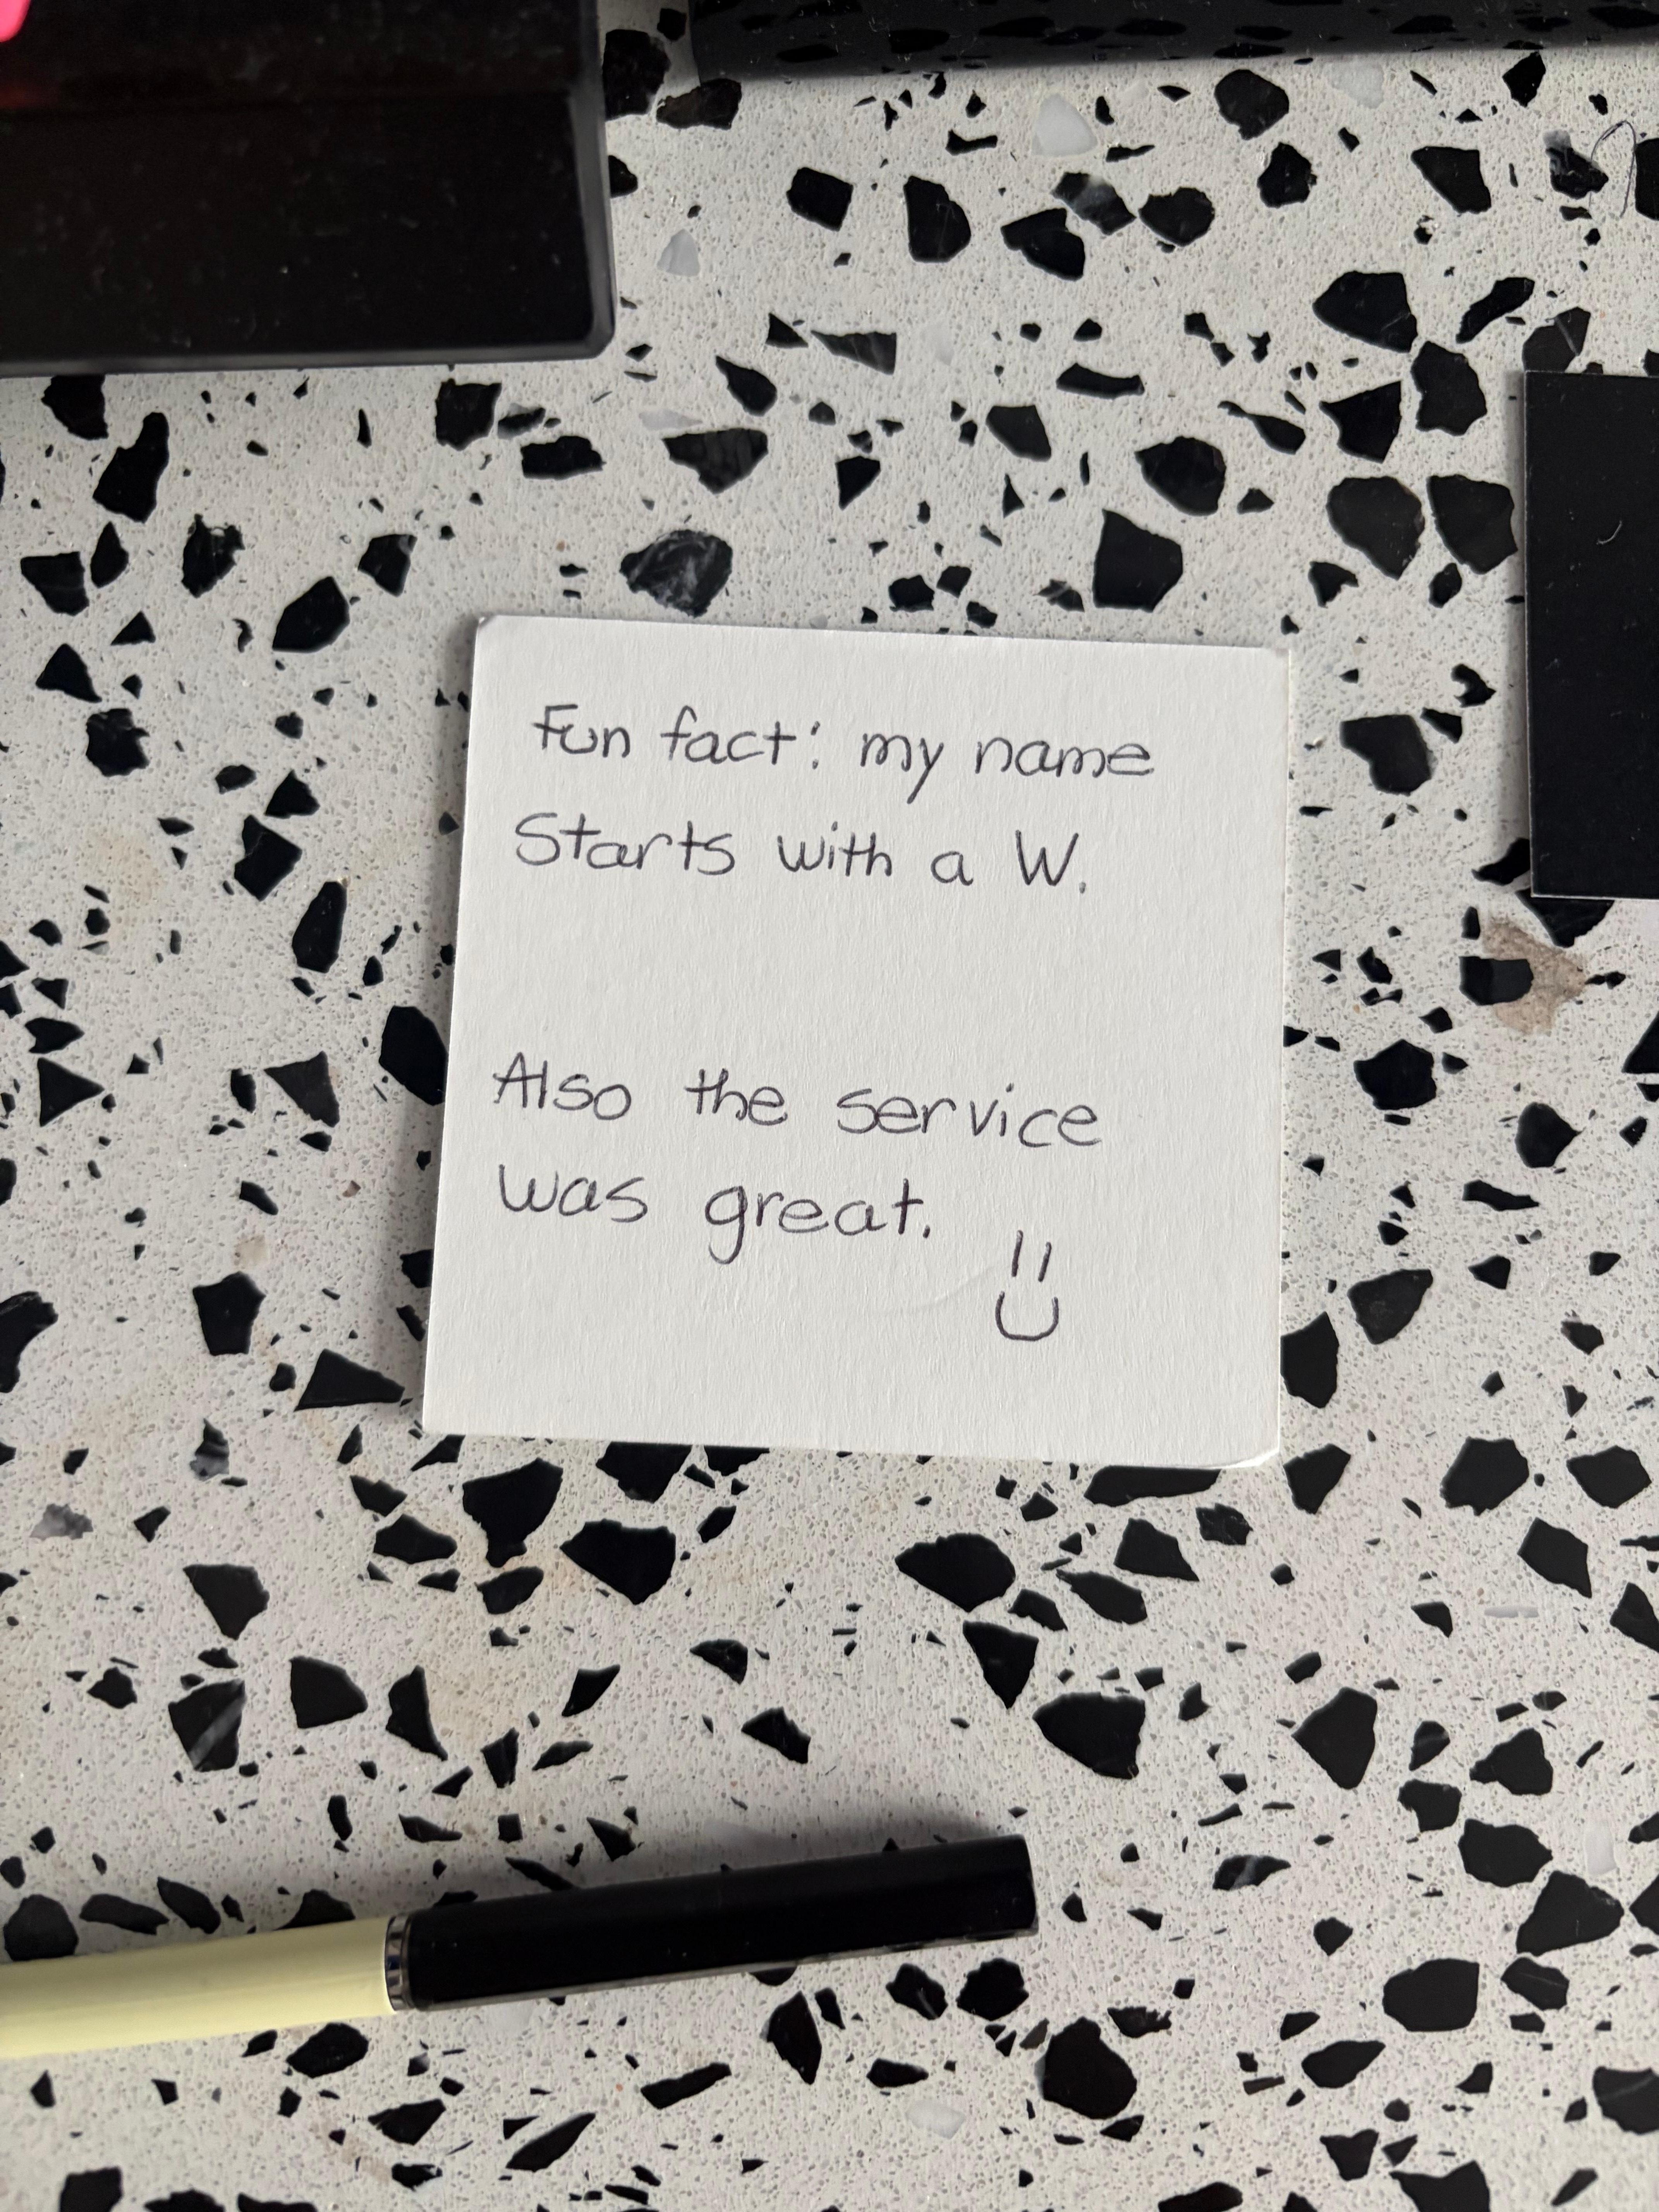 Fun fact: my name
Starts with a W.
Also the service
was great.